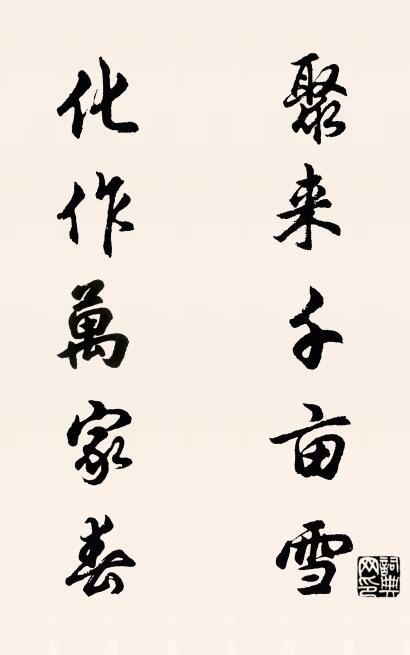 聚来千亩雪
化作萬家春
詞典网印